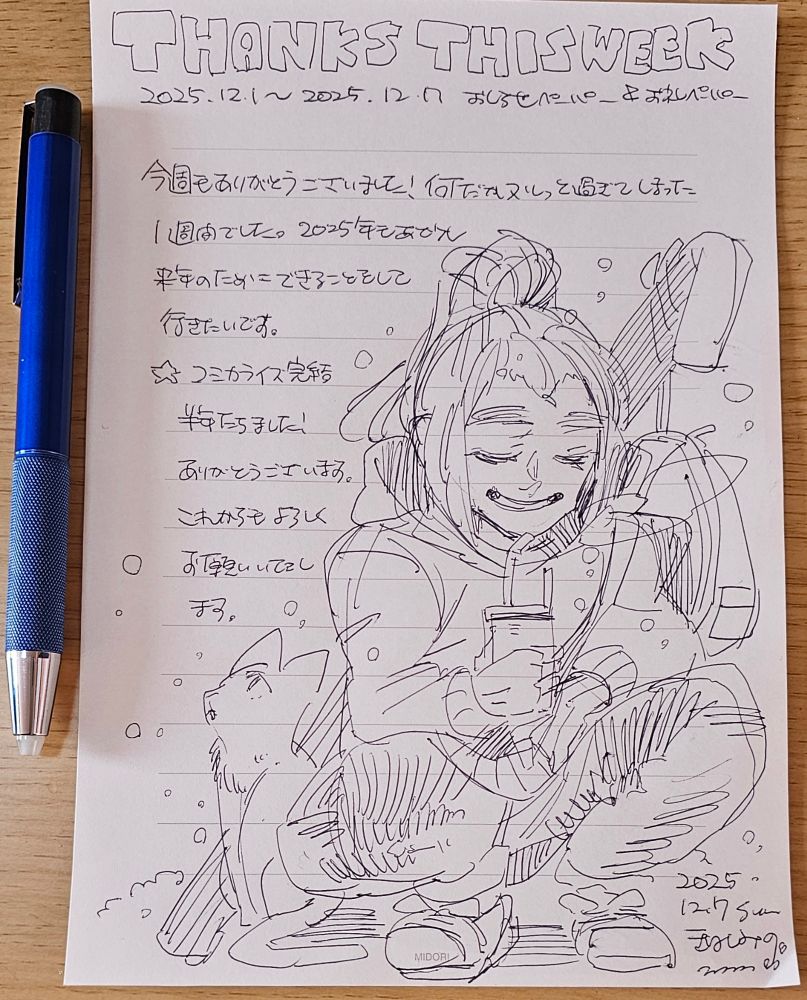 THANKS THIS WEEK
2025.12.1〜2025.12.7 おしらせペーパー&お礼ペーパー
今週もありがとうございました! 何だかんだと過ぎてしまった
1週間でした。2025年もあとわずか
来年のためにできることをして
行きたいです。
☆ コミカライズ完結
半年たちました!
ありがとうございます。
これからもよろしく
お願いいたし
ます。
2025.
12.7 Sun
MIDORI